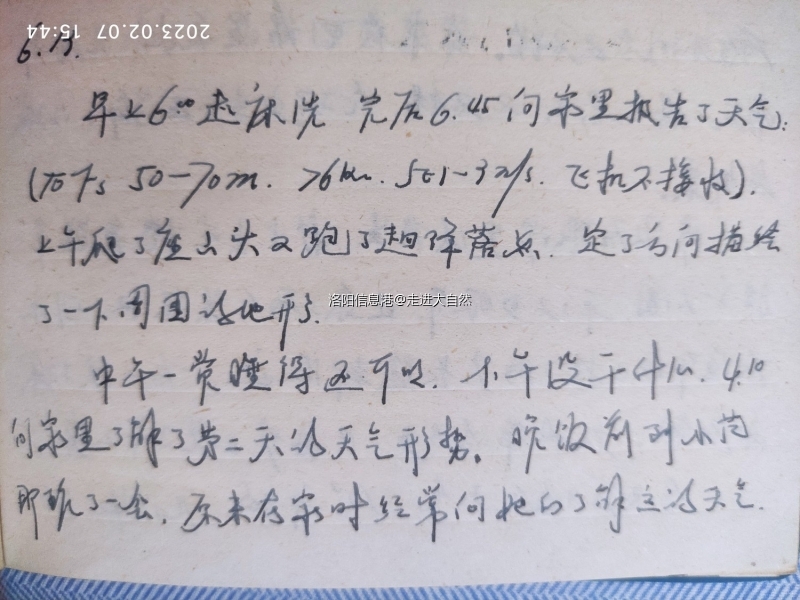 2023.02.07 15:44
6.13.
早上6:00起床洗完后6.45向家里报告了天气:
50—70m. >6km. SE1~3m/s. 飞机不接收).
上午爬了座山头又跑了趟降落点. 定了方向描绘
了一下周围的地形.
中午一觉睡得还可以. 下午没干什么. 4.10
向家里了解了第二天的天气形势。晚饭前到小
那玩了一会, 原来在家时经常向他们了解这的天气.
洛阳信息港@走进大自然